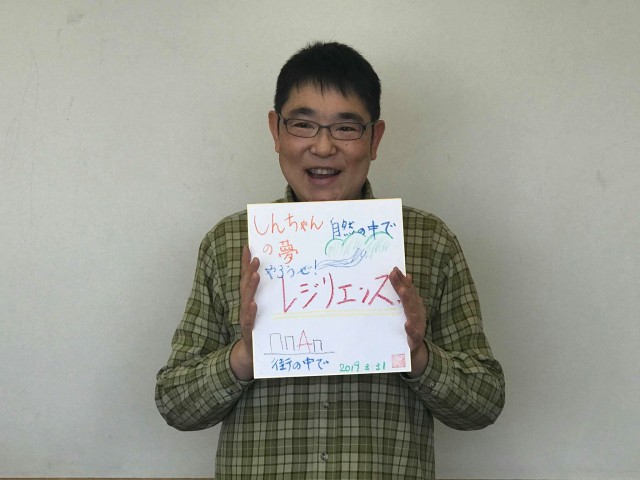 しんちゃん
の夢
自然の中で
やろうぜ!
レジリエンス
街の中で